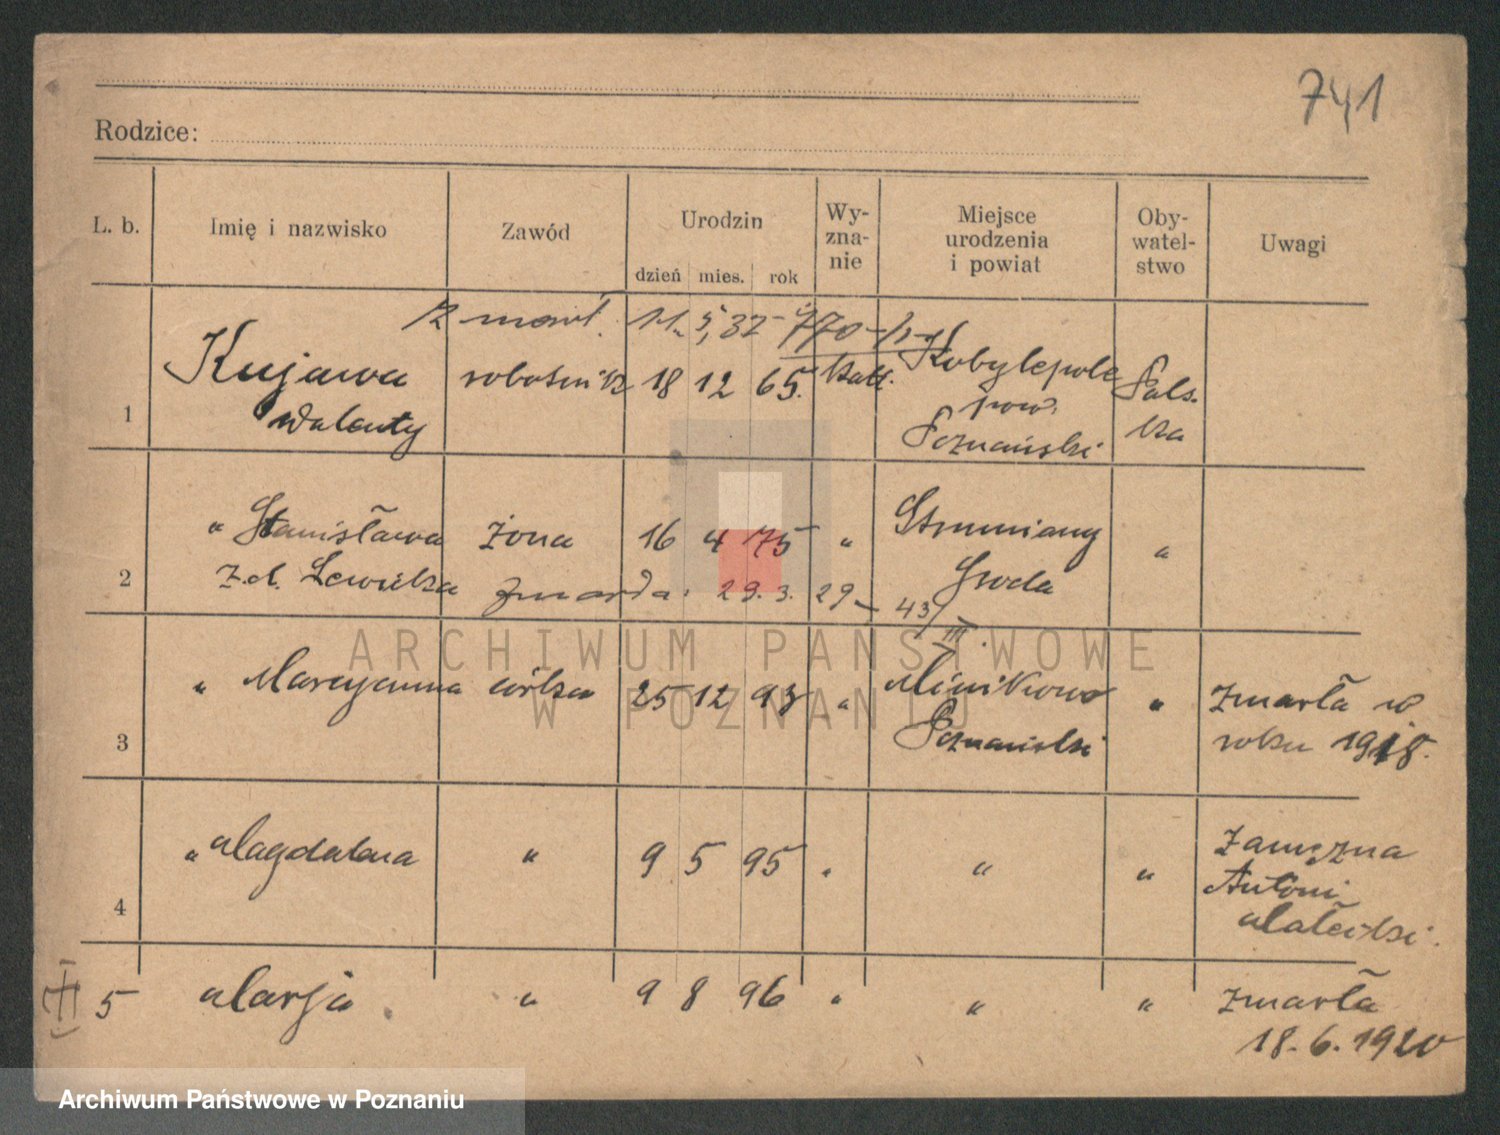 741
Rodzice:
L. b. Imię i nazwisko Zawód Urodzin Wy- Miejsce Oby- Uwagi
zna- urodzenia watel-
dzień mies. rok nie i powiat stwo
zmarł. 11. 5, 32 - 770
1 Kujawa robotnik 18 12 65. kath. Kobylepole Pols-
Walenty pow. ka
Poznański
2 " Stanisława żona 16 4 75 " Strumiany "
z.d. Lewicka zmarła: 29. 3. 29 - 43/III. Środa
3 " Maryanna córka 25 12 93 " Minikowo " zmarła w
Poznański roku 1918.
4 " Magdalena " 9 5 95 " " " zamężna
Antoni
5 Marja " 9 8 96 " " " zmarła
18. 6. 1920
ARCHIWUM PAŃSTWOWE
W POZNANIU
Archiwum Państwowe w Poznaniu